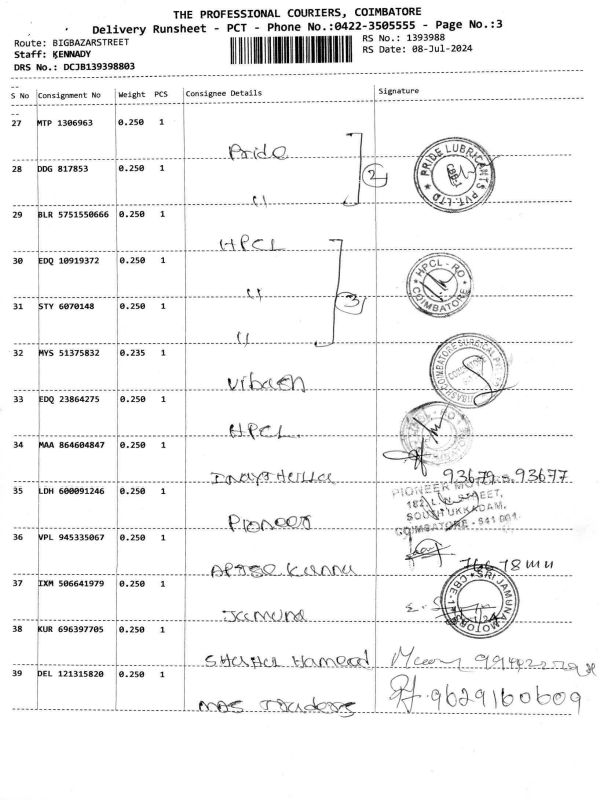 THE PROFESSIONAL COURIERS, COIMBATORE
Delivery Runsheet - PCT - Phone No.:0422-3505555 - Page No.:3
Route: BIGBAZARSTREET RS No.: 1393988
Staff: KENNADY RS Date: 08-Jul-2024
DRS No.: DCJB139398803
S No Consignment No Weight PCS Consignee Details Signature
27 MTP 1306963 0.250 1
Pride
28 DDG 817853 0.250 1
" 2
PRIDE LUBRICANTS PVT. LTD CBE-1
29 BLR 5751550666 0.250 1
HPCL
30 EDQ 10919372 0.250 1
"
HPCL - RO COIMBATORE
31 STY 6070148 0.250 1
" 3
32 MYS 51375832 0.235 1
Vibash
COIMBATORE SURGICAL
33 EDQ 23864275 0.250 1
HPCL
34 MAA 864604847 0.250 1
35 LDH 600091246 0.250 1
Pioneer
PIONEER MOTORS
SOUTH UKKADAM,
COIMBATORE - 641 001.
36 VPL 945335067 0.250 1
37 IXM 506641979 0.250 1
Jamuna
SRI JAMUNA MOTORS CBE-1
38 KUR 696397705 0.250 1
Hameed
39 DEL 121315820 0.250 1
Traders 9629160609